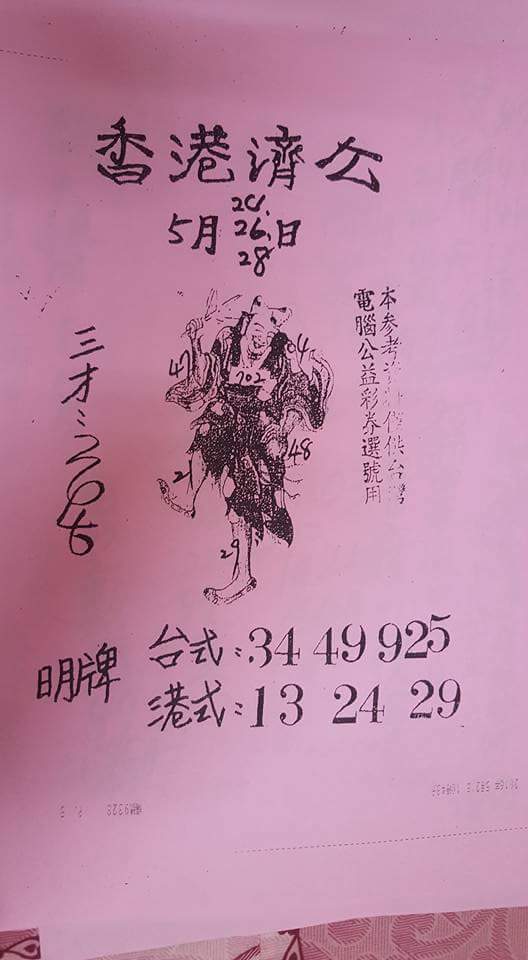 香港濟公
5月 24. 26. 28 日
本參考資料僅供台灣
電腦公益彩券選號用
三才:
47
04
702
48
21
29
明牌
台式:34 49 925
港式:13 24 29